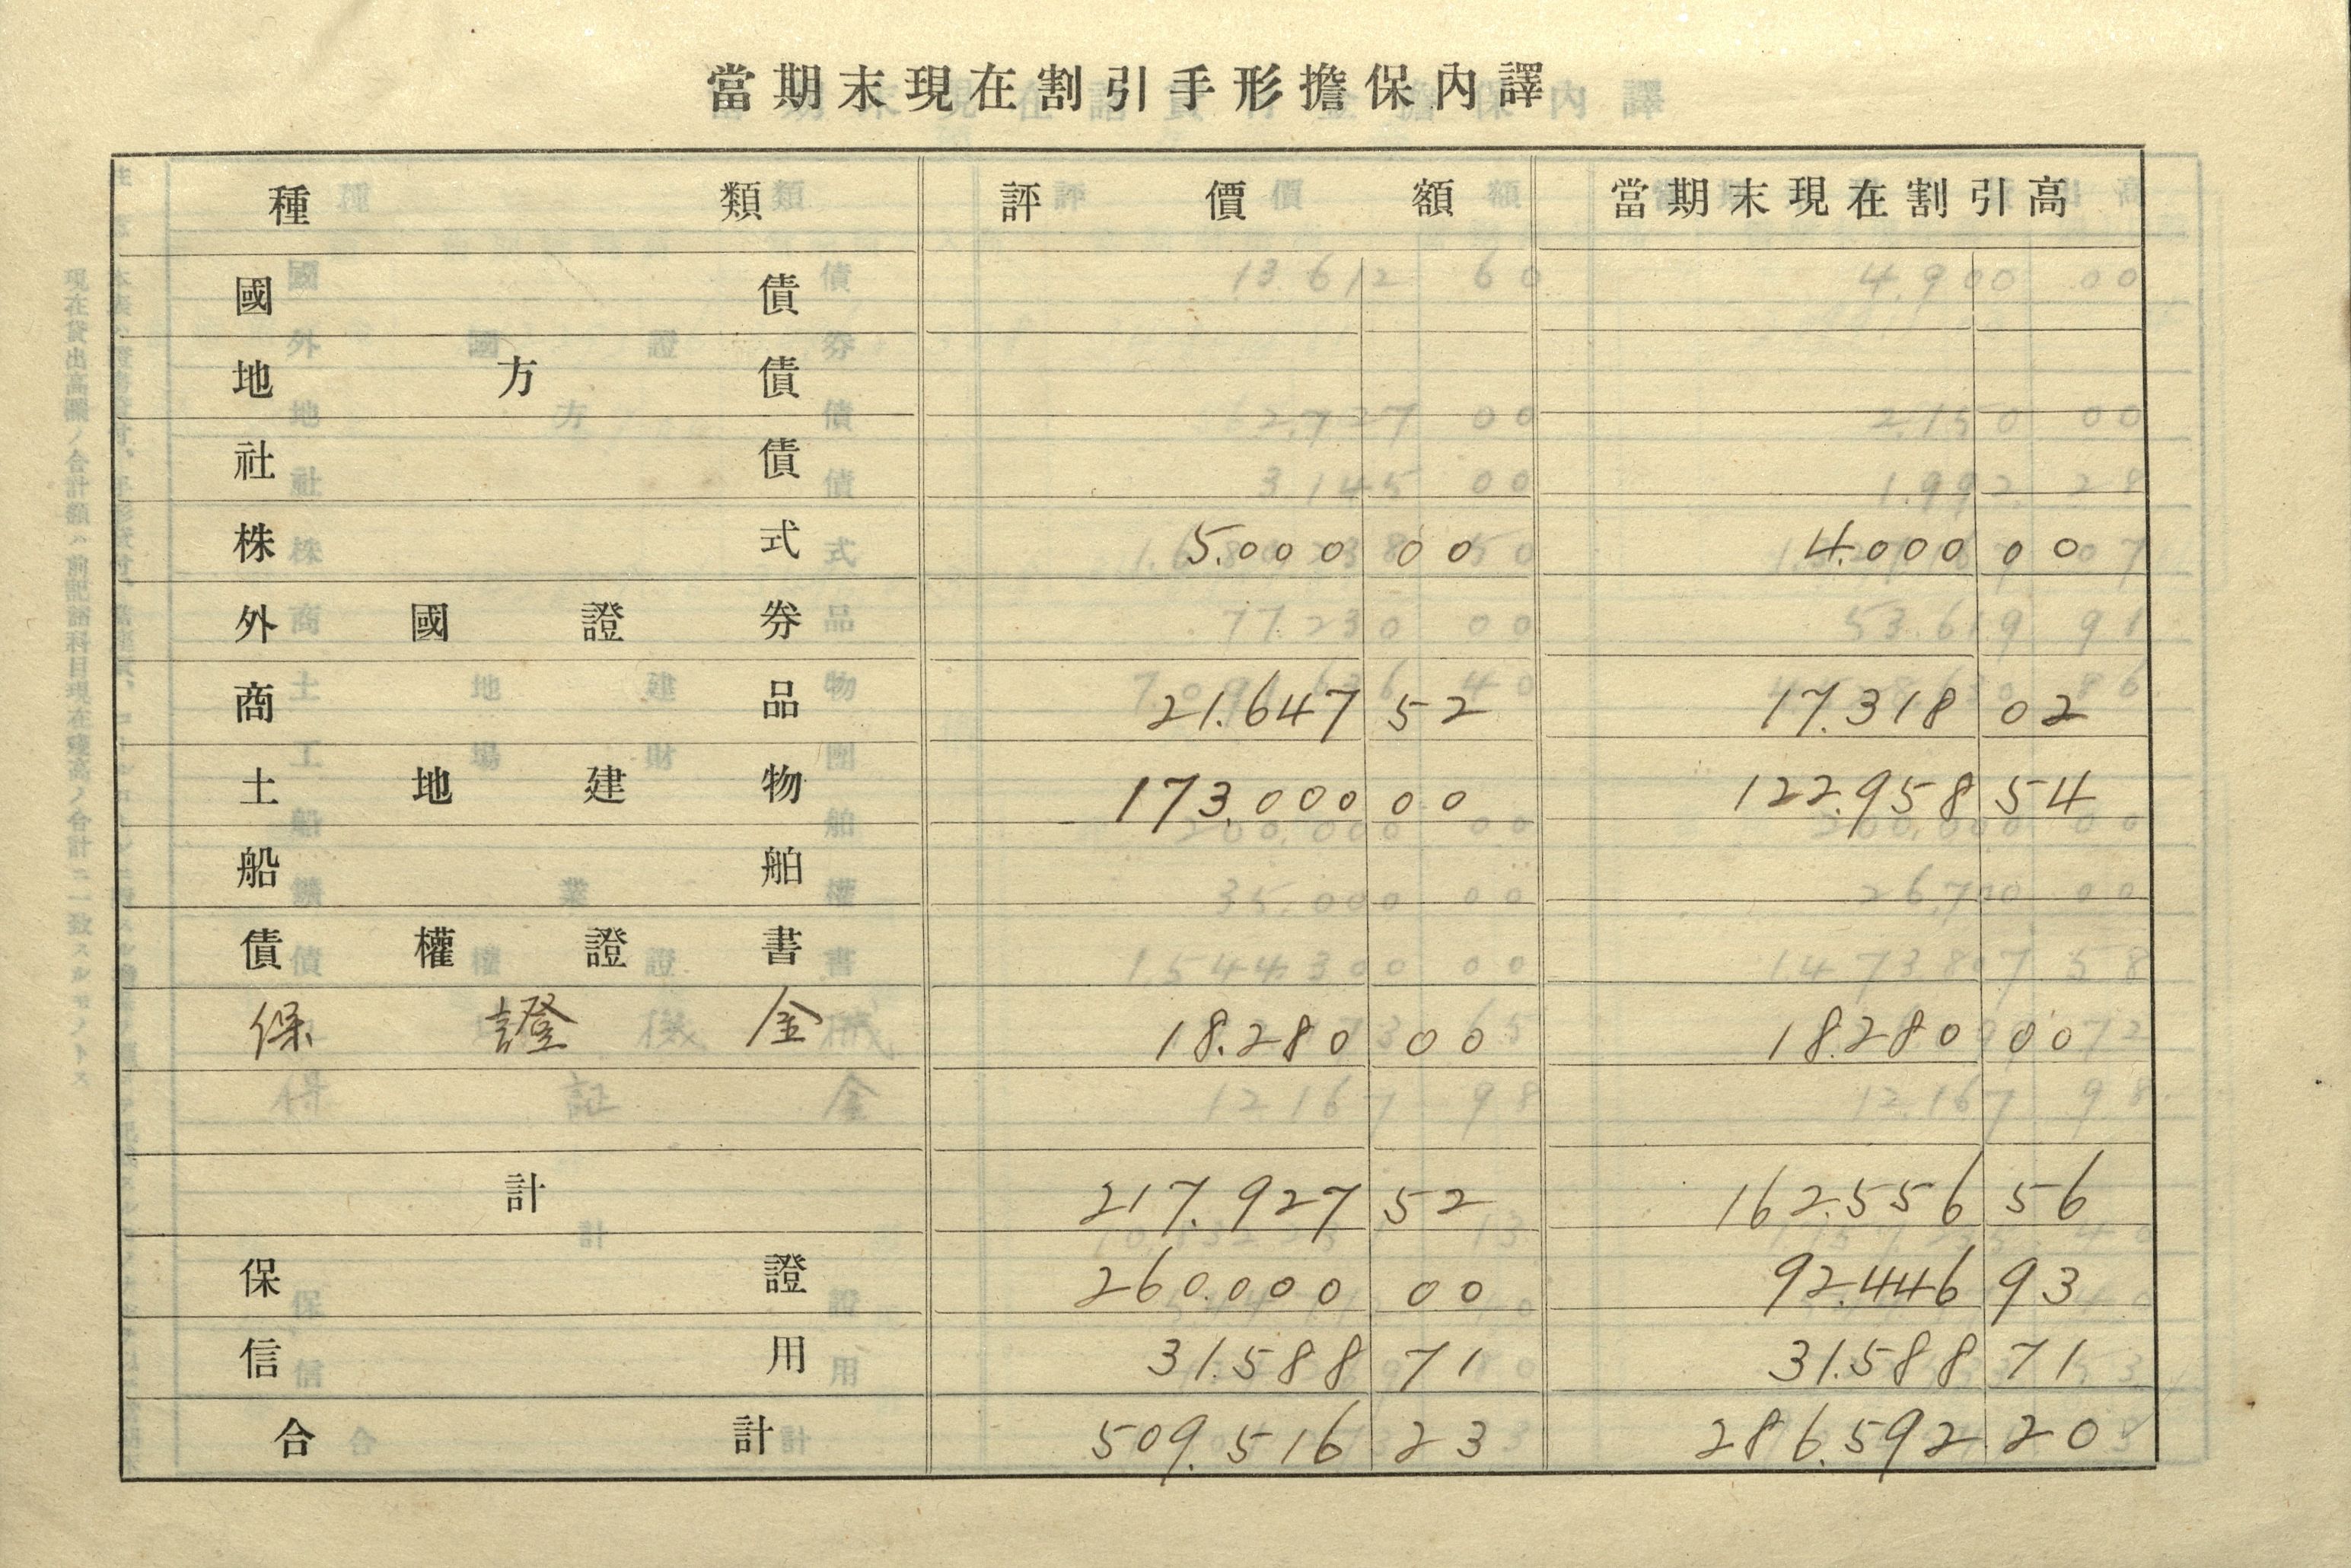 當期末現在割引手形擔保內譯
種類 評價額 當期末現在割引高
國債
地方債
社債
株式 5.000 00 4.000 00
外國證券
商品 21.647 52 17.318 02
土地建物 173.000 00 122.958 54
船舶
債權證書
保證金 18.280 00 18.280 00
計 217.927 52 162.556 56
保證 260.000 00 92.446 93
信用 31.588 71 31.588 71
合計 509.516 23 286.592 20